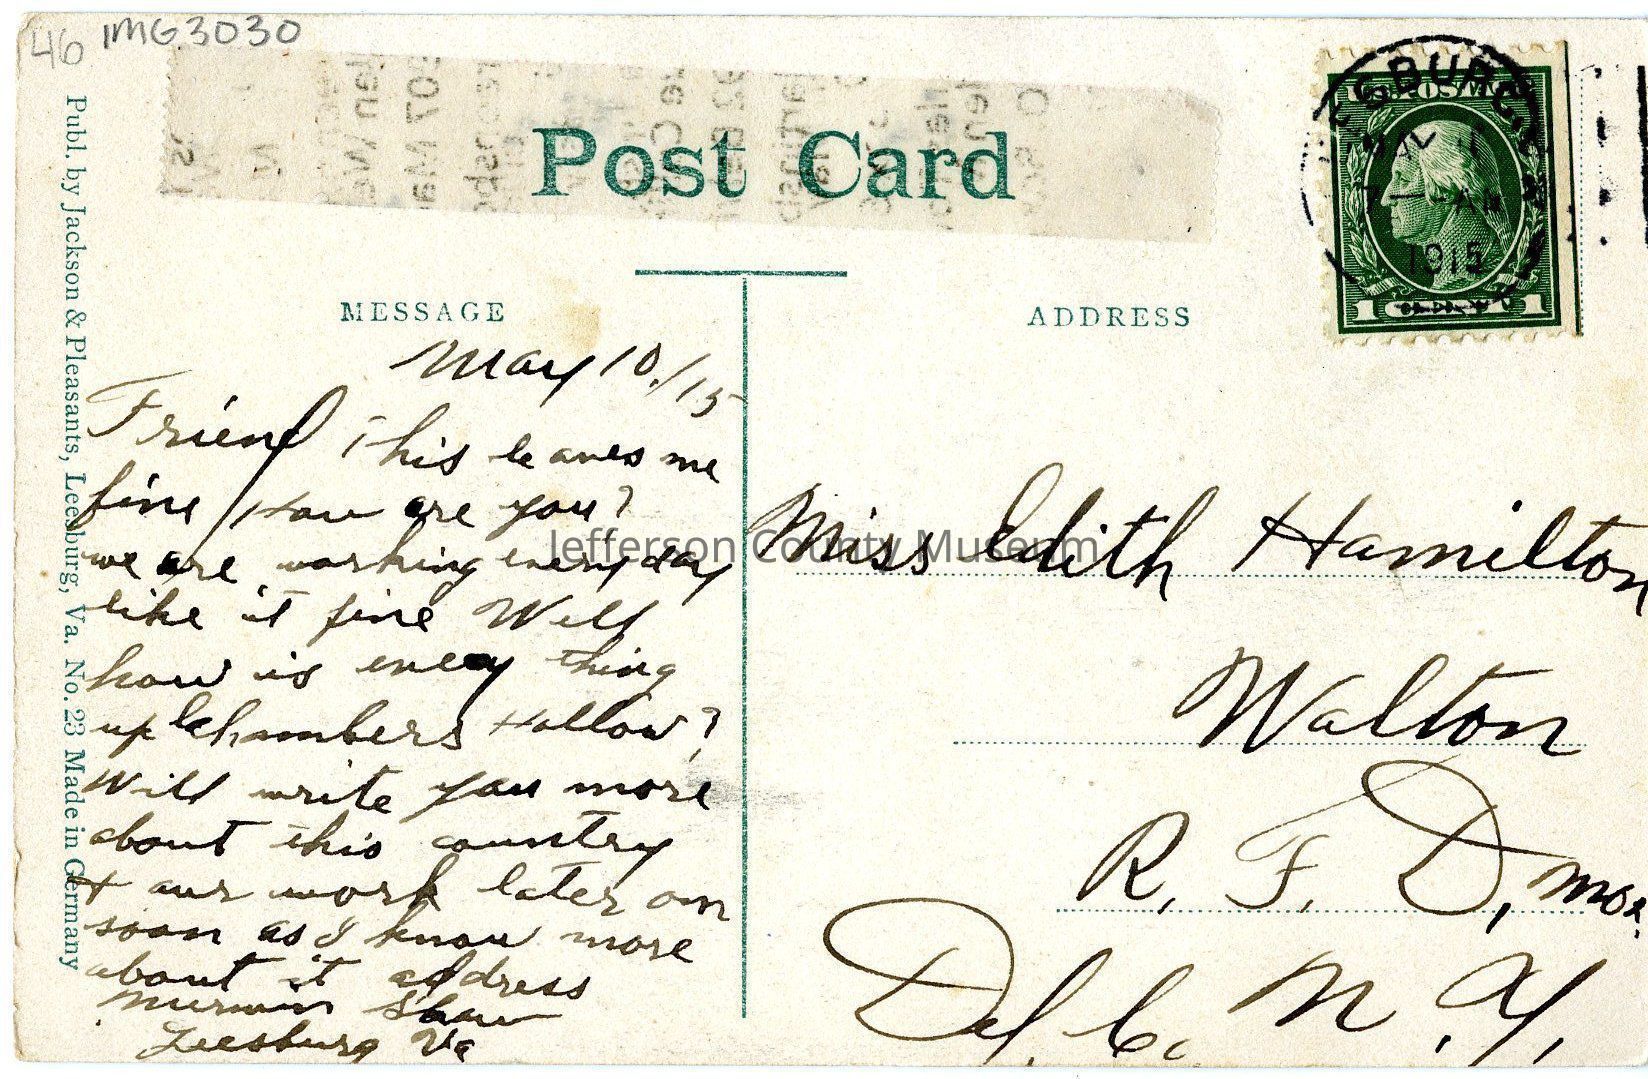 46 IMG3030
Post Card
LEESBURG, VA.
7-AM
1915
1 1
Publ. by Jackson & Pleasants, Leesburg, Va. No. 23 Made in Germany
MESSAGE
May 10./15
Friend This leaves me
fine How are you?
we are working every day
like it fine Well
how is every thing
up Chambers Hollow?
Will write you more
about this country
+ our work later on
soon as I know more
about it address
Merwin Shaw
Leesburg Va
ADDRESS
Miss Edith Hamilton
Walton
R. F. D, no 2.
Del. Co. N. Y.
Jefferson County Museum